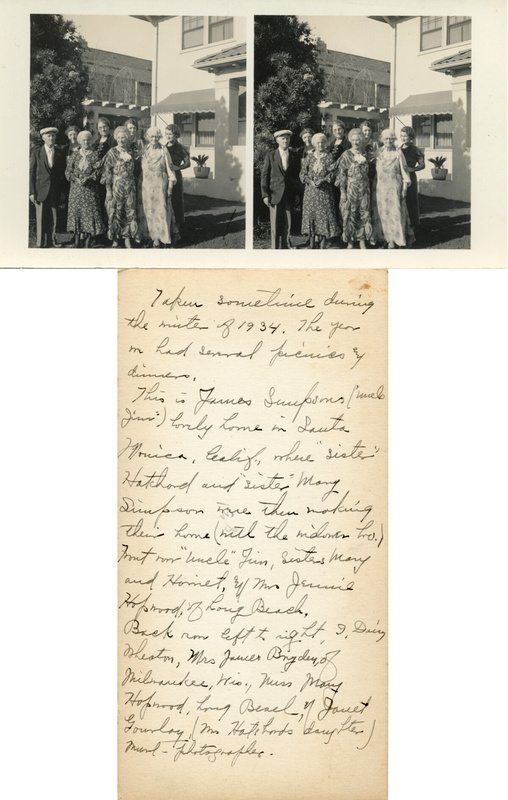 Taken sometime during
the winter of 1934. The year
we had several picnics &
dinners.
This is James Simpsons ("uncle
Jim") lovely home in Santa
Monica, Calif., where "sister"
Hatchord and "sister" Mary
Simpson were then making
their home (with the widower bro.)
Front row "Uncle" Jim, Sisters Mary
and Harriet, & Mrs Jennie
Hopwood, of Long Beach.
Back row left to right, I. Daisy
Wheston, Mrs James Bryden, of
Milwaukee, Wis., Miss Mary
Hopwood, Long Beach, & Janet
Gourlay (Mrs Hatchords daughter)
- photographer.